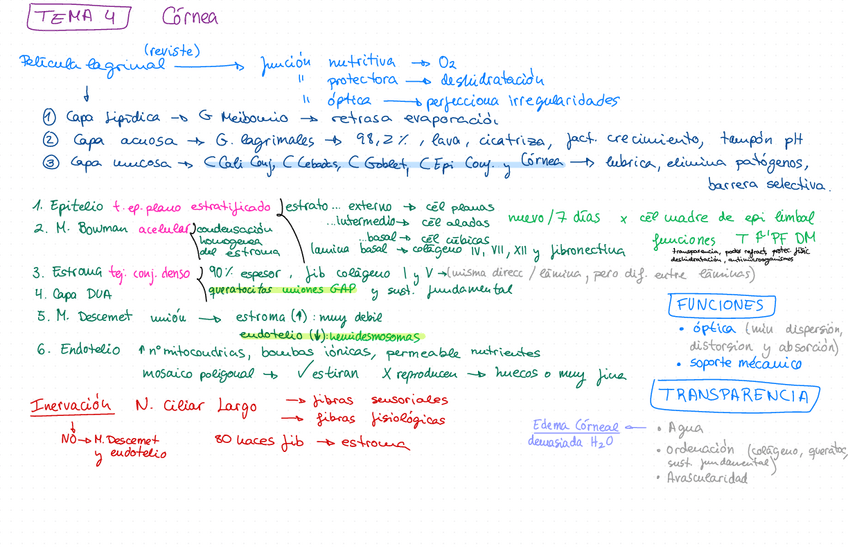 TEMA 4 Córnea
(reviste)
Película lagrimal → función nutritiva → O2
" protectora → deshidratación
" óptica → perfecciona irregularidades
① Capa lipídica → G Meibomio → retrasa evaporación
② Capa acuosa → G. lagrimales → 98,2%, lava, cicatriza, fact. crecimiento, tampón pH
③ Capa mucosa → C Cali Conj, C Lebads, C Goblet, C Epi Conj. y Córnea → lubrica, elimina patógenos,
barrera selectiva.
1. Epitelio t. ep. plano estratificado estrato... externo → cél planas
...intermedio → cél aladas
...basal → cél cúbicas
lamina basal → colágeno IV, VII, XII y fibronectina
nuevo / 7 días x cél madre de epi limbal
funciones T P'PF DM
transparencia, poder refract, protec fisic
deshidratación, antimicroorganismos
2. M. Bowman acelular condensación
homogenea
del estroma
3. Estroma tej. conj. denso 90% espesor, fib colágeno I y V → (misma direcc / lámina, pero dif. entre láminas)
queratocitos uniones GAP y sust. fundamental
4. Capa DUA
5. M. Descemet unión → estroma (↑): muy debil
endotelio (↓): hemidesmosomas
6. Endotelio ↑ nº mitocondrias, bombas iónicas, permeable nutrientes
mosaico poligonal → ✓ estiran X reproducen → huecos o muy fina
FUNCIONES
• óptica (min dispersión,
distorsion y absorción)
• soporte mecánico
TRANSPARENCIA
• Agua
• Ordenación (colágeno, queratoc,
sust. fundamental)
• Avascularidad
Edema Córneal ←
demasiada H2O
Inervación N. Ciliar Largo → fibras sensoriales
→ fibras fisiológicas
NO → M. Descemet
y endotelio
80 haces fib → estroma